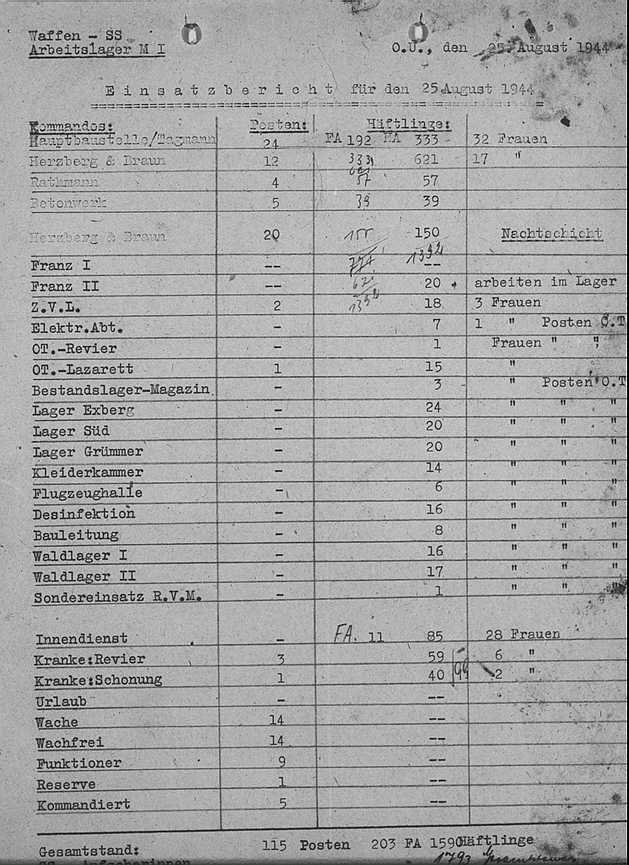 Waffen - SS
Arbeitslager M I O.U., den 25. August 1944
Einsatzbericht für den 25.August 1944
Kommandos: Posten: Häftlinge:
Hauptbaustelle/Tagmann 24 FA 192 FA 333 32 Frauen
Herzberg & Braun 12 333 621 17 "
Rathmann 4 57 57
Betonwerk 5 39 39
Herzberg & Braun 20 150 Nachtschicht
1392
Franz I -- --
Franz II -- 20 arbeiten im Lager
Z.V.L. 2 1392 18 3 Frauen
Elektr.Abt. - 7 1 " Posten O.T
OT.-Revier - 1 Frauen " "
OT.-Lazarett 1 15 "
Bestandslager-Magazin - 3 " Posten O.T
Lager Exberg - 24 " " "
Lager Süd - 20 " " "
Lager Grümmer - 20 " " "
Kleiderkammer - 14 " " "
Flugzeughalle - 6 " " "
Desinfektion - 16 " " "
Bauleitung - 8 " " "
Waldlager I - 16 " " "
Waldlager II - 17 " " "
Sondereinsatz R.V.M. - 1 " " "
Innendienst - FA. 11 85 28 Frauen
Kranke:Revier 3 59 6 "
Kranke:Schonung 1 40 99 2 "
Urlaub - --
Wache 14 --
Wachfrei 14 --
Funktioner 9 --
Reserve 1 --
Kommandiert 5 --
Gesamtstand: 115 Posten 203 FA 1590Häftlinge
1793